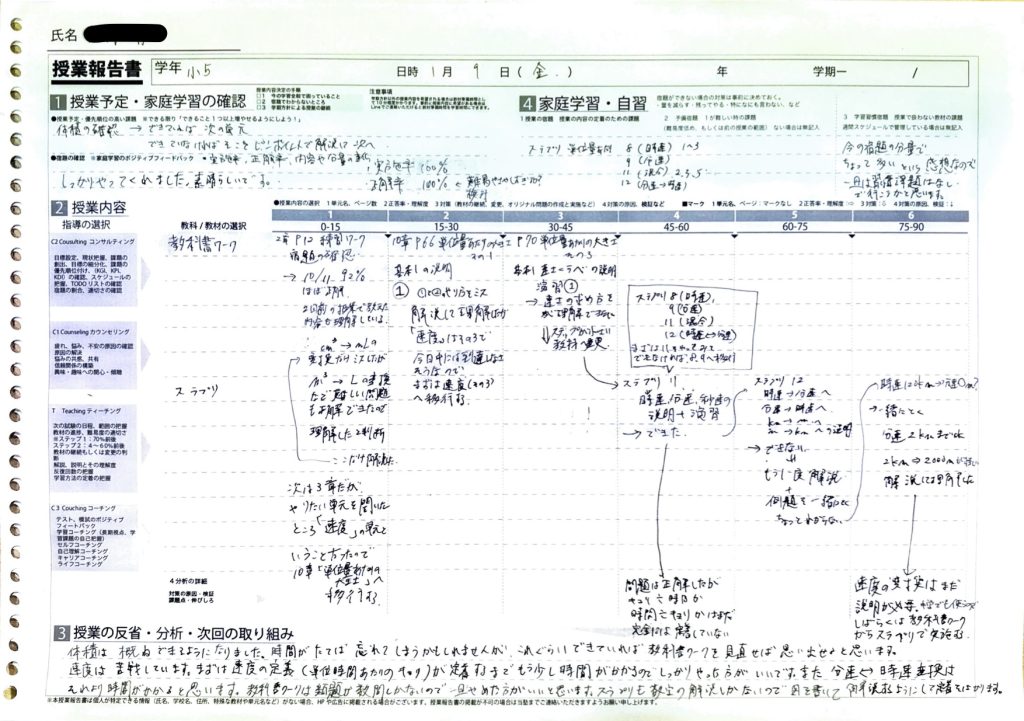 氏名
授業報告書
学年 小5
日時 1月 9日 (金.)
年 学期ー /
1 授業予定・家庭学習の確認
授業内容決定の手順
□1 今の学習全般で困っていること
□2 宿題でわからないところ
□3 学期方針による授業の継続
注意事項
●授業予定・優先順位の高い課題 ※できる限り「できること1つ以上増やせるようにしよう！」
体積の確認 → できていれば 次の単元
できていなければ そこをピンポイントで解決して次へ
●宿題の確認 ※家庭学習のポジティブフィードバック
実施率 100%
正解率 100%
しっかりやってくれました。素晴らしいです。
4 家庭学習・自習
宿題ができない場合の対策は事前に決めておく。
・量を減らす・残ってやる・特になにも言わない、など
1 授業の宿題 授業の内容の定着のための課題
2 予備宿題 1が難しい時の課題
(難易度低め、もしくは前の授業の範囲) ない場合は無記入
3 学習習慣宿題 授業で扱わない教材の課題
週間スケジュールで管理している場合は無記入
スラプリ 単位量あたり 8 (時速) 1〜3
9 (分速)
11 (混合) 2.3.5
12 (分速→時速)
今の宿題の分量で
ちょっと多いという感想なので
一旦は習慣課題はなし
で行こうかと思います。
2 授業内容
指導の選択
教科/教材の選択
●授業内容の選択 1単元名、ページ数 2正答率・理解度 3対策(教材の継続、変更、オリジナル問題の作成と実施など) 4対策の原因、検証など
1
0-15
2
15-30
3
30-45
4
45-60
5
60-75
6
75-90
C2 Cousulting コンサルティング
目標設定、現状把握、課題の
創出、目標の細分化、課題の
優先順位付け、(KGI, KPI,
KDI) の確認、スケジュールの
把握、TODOリストの確認
宿題の割合、適切さの確認
C1 Counseling カウンセリング
疲れ、悩み、不安の原因の確認
原因の解決
悩みの共感、共有
信頼関係の構築
興味・趣味への関心・傾聴
T Teaching ティーチング
次の試験の日程、範囲の把握
教材の進捗、難易度の適切さ
※ステップ1:70%前後
ステップ2:4〜60%前後
教材の継続もしくは変更の判
断
解説、説明とその理解度
反復回数の把握
学習方法の定着の把握
C3 Couching コーチング
テスト、模試のポジティブ
フィートバック
学習コーチング (長期視点、学
習課題の自己把握)
セルフコーチング
自己理解コーチング
キャリアコーチング
ライフコーチング
教科書ワーク
スラプリ
2章 P12 練習ワーク
宿題の確認
→ 10/11. 92%
ほぼ正解
内容も理解している。
cm³ → mLの
変換がミスしたが
m³ → Lの変換
など難しい問題
も正解できたので
理解したと判断
ここだけ解説した
次は3章だが、
やりたい単元を聞いた
ところ「速度」の単元と
いうことだったので
10章「単位量あたりの
大きさ」へ
移行する。
10章 P66 単位量あたりの大きさ
その1
基本1の説明
解決して理解したが
「速度」はその3で
今日中には到達しなさ
そうなので
まずは速度(その3)
へ移行する
P70 単位量あたりの大きさ
その3
基本1 速さとくらべの説明
演習①
→ 速さの求め方を
教材へ変更
スラプリ 8 (時速)
9 (分速)
11 (混合)
12 (時速↔分速)
まずは11をやってみて
できなければ8,9へ移行
スラプリ 11
時速、分速、秒速の
説明+演習
→ できた.
問題は正解したが
キョリ÷時間か
時間÷キョリかはまだ
完全には定着していない
スラプリ 12
時速→分速へ
分速→時速へ
→ できない
もう一度解説
+
例題を一緒にとく
ちょっとわからない
時速120km→分速□m?
→一緒にとく
分速2kmまでOK
2km→2000mが
解説して理解した
速度の変換はまだ
説明が必要。
しばらくは教科書ワーク
からスラプリで実施する
4 分析の詳細
対策の原因・検証
課題点・伸びしろ
3 授業の反省・分析・次回の取り組み
体積は概ねできるようになりました。時間がたてば忘れてしまうかもしれませんが、これぐらいできていれば教科書ワークを見直せば思い出せると思います。
速度は苦戦しています。まずは速度の定義(単位時間あたりのキョリ)が定着するまでもう少し時間がかかるのでしっかりやった方がいいです。また分速↔時速変換は
それより時間がかかると思います。教科書ワークは類題が数問しかないので一旦やめた方がいいと思います。スラプリも数字の解説しかないので図を書いて解決するようにして定着をはかります。
※本授業報告書は個人が特定できる情報(氏名、学校名、住所、特殊な教材や単元名など)がない場合、HPや広告に掲載される場合がございます。授業報告書の掲載が不可の場合は当塾までご連絡いただきますようお願い申し上げます。